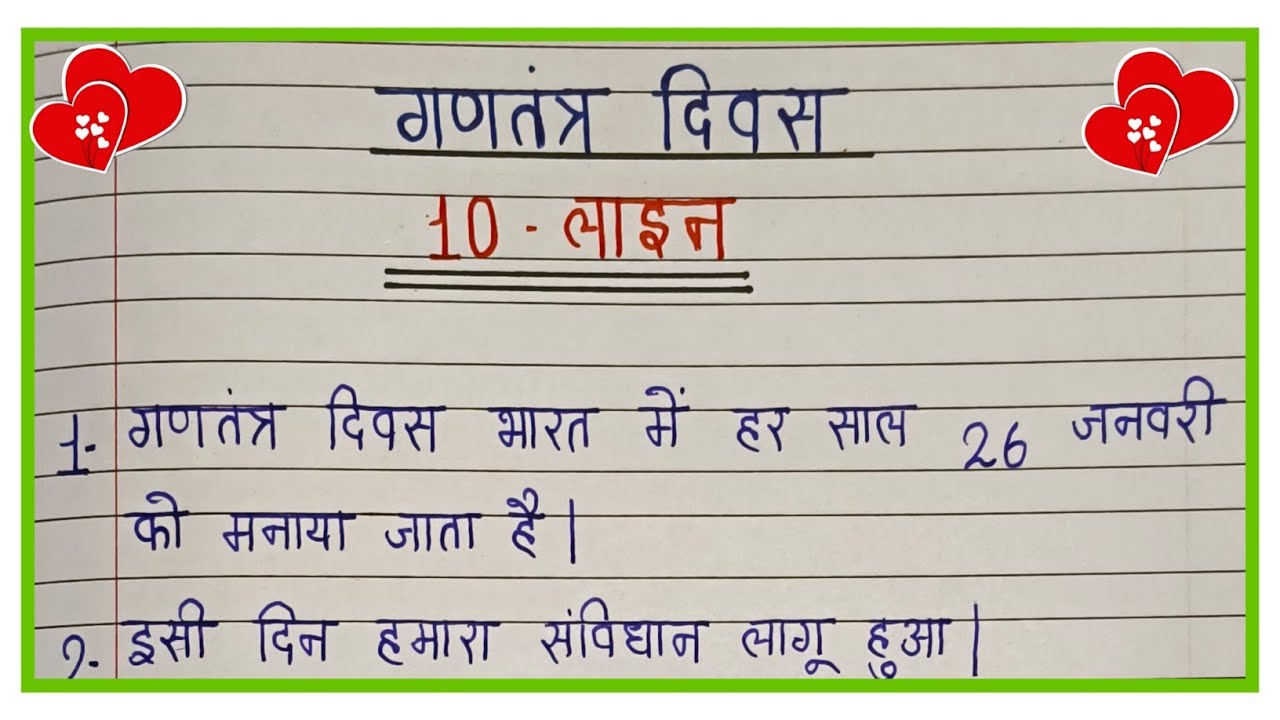 गणतंत्र दिवस
10 - लाइन
1- गणतंत्र दिवस भारत में हर साल 26 जनवरी
को मनाया जाता है।
2- इसी दिन हमारा संविधान लागू हुआ।